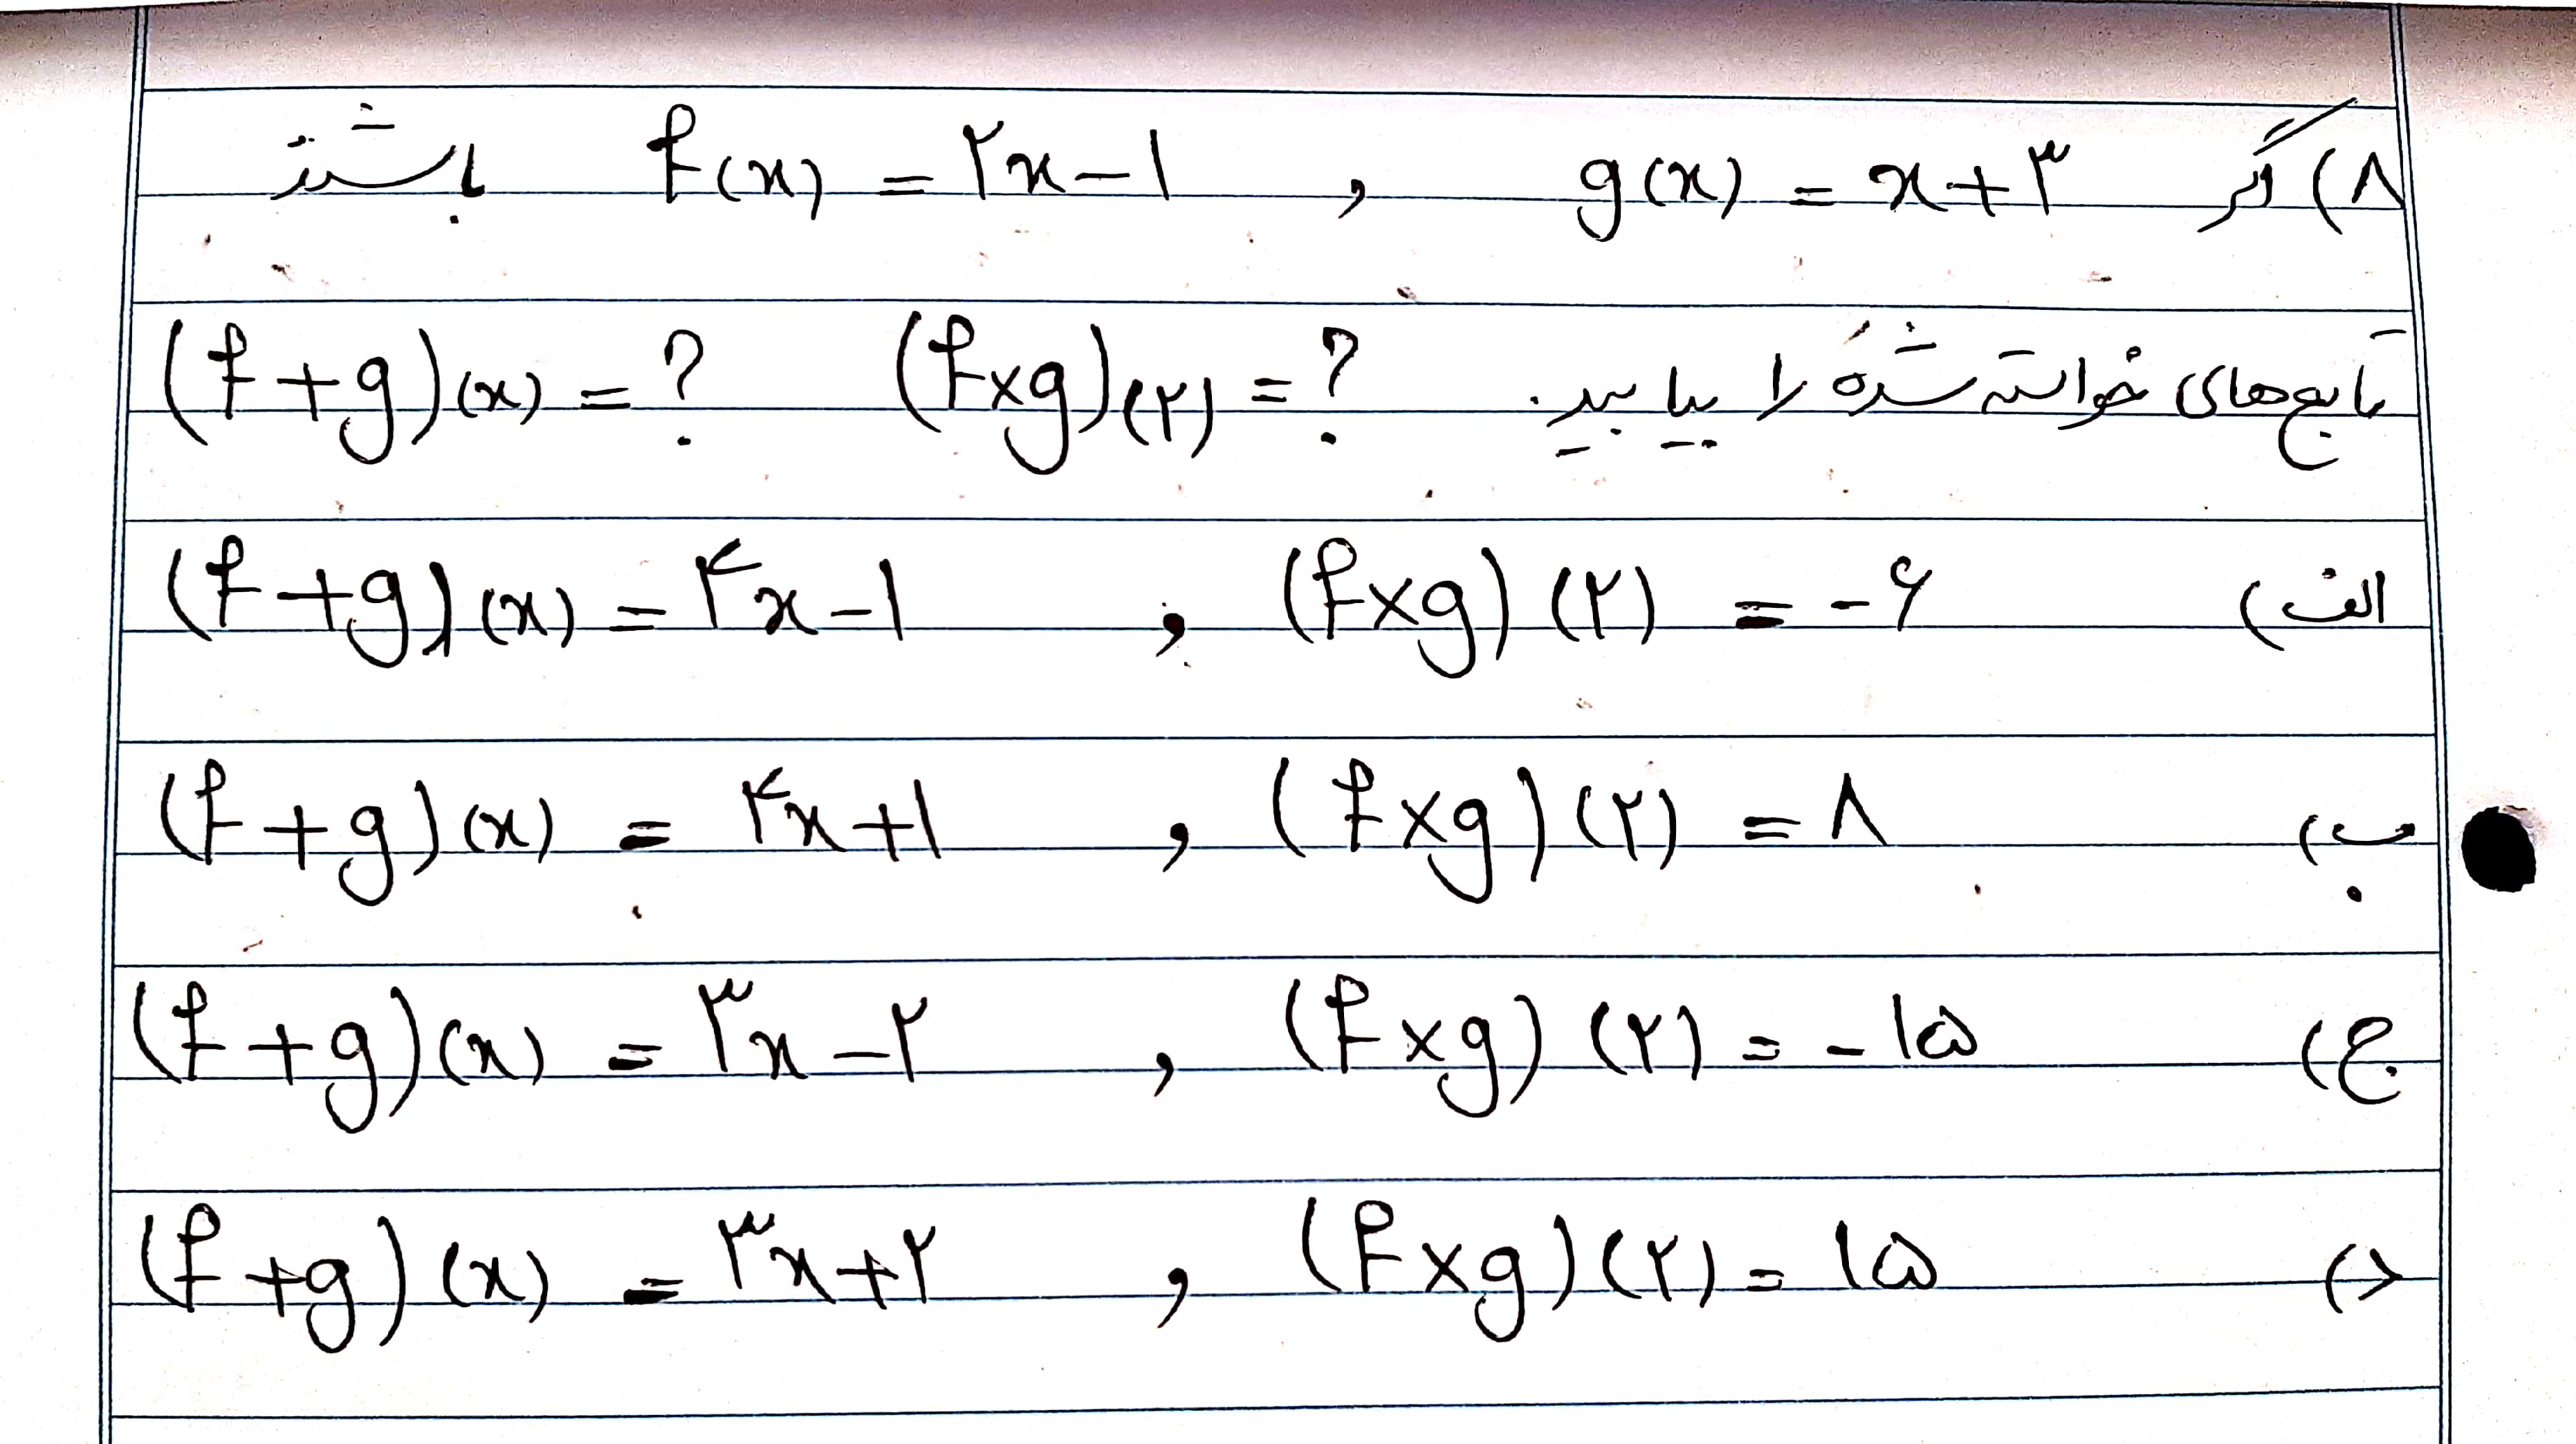 ۸) گر g(x) = x+۳ , f(x) = ۲x-۱ باشند
تابع‌های خواسته شده را بیابید. (f×g)(۲) = ? (f+g)(x) = ?
الف) (f+g)(x) = ۴x-۱ , (f×g)(۲) = -۶
ب) (f+g)(x) = ۴x+۱ , (f×g)(۲) = ۸
ج) (f+g)(x) = ۳x-۲ , (f×g)(۲) = -۱۵
د) (f+g)(x) = ۳x+۲ , (f×g)(۲) = ۱۵